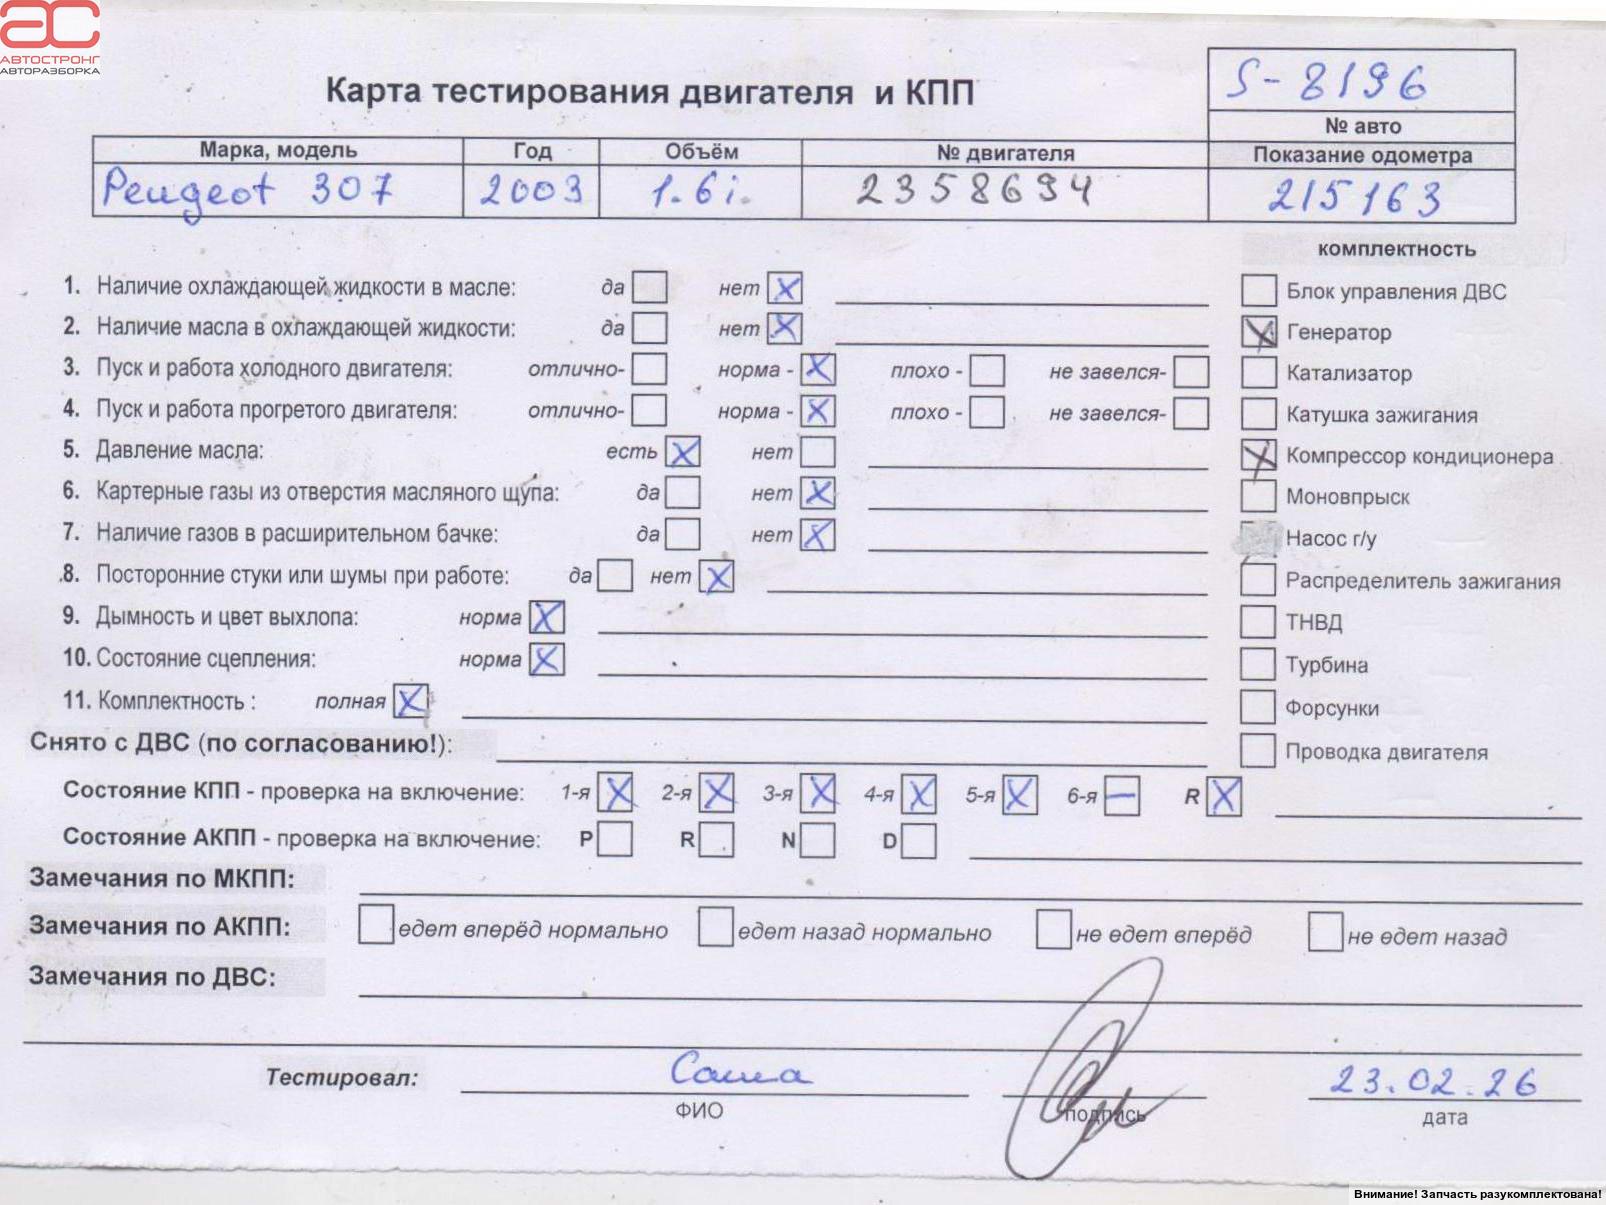 АС
АВТОСТРОНГ
АВТОРАЗБОРКА
Карта тестирования двигателя и КПП
S-8196
№ авто
Марка, модель Год Объём № двигателя Показание одометра
Peugeot 307 2003 1.6i. 2358694 215163
комплектность
1. Наличие охлаждающей жидкости в масле: да нет X Блок управления ДВС
2. Наличие масла в охлаждающей жидкости: да нет X X Генератор
3. Пуск и работа холодного двигателя: отлично- норма - X плохо - не завелся- Катализатор
4. Пуск и работа прогретого двигателя: отлично- норма - X плохо - не завелся- Катушка зажигания
5. Давление масла: есть X нет X Компрессор кондиционера
6. Картерные газы из отверстия масляного щупа: да нет X Моновпрыск
7. Наличие газов в расширительном бачке: да нет X Насос г/у
8. Посторонние стуки или шумы при работе: да нет X Распределитель зажигания
9. Дымность и цвет выхлопа: норма X ТНВД
10. Состояние сцепления: норма X Турбина
11. Комплектность : полная X Форсунки
Снято с ДВС (по согласованию!): Проводка двигателя
Состояние КПП - проверка на включение: 1-я X 2-я X 3-я X 4-я X 5-я X 6-я — R X
Состояние АКПП - проверка на включение: P R N D
Замечания по МКПП:
Замечания по АКПП: едет вперёд нормально едет назад нормально не едет вперёд не едет назад
Замечания по ДВС:
Тестировал: Саша 23.02.26
ФИО подпись дата
Внимание! Запчасть разукомплектована!